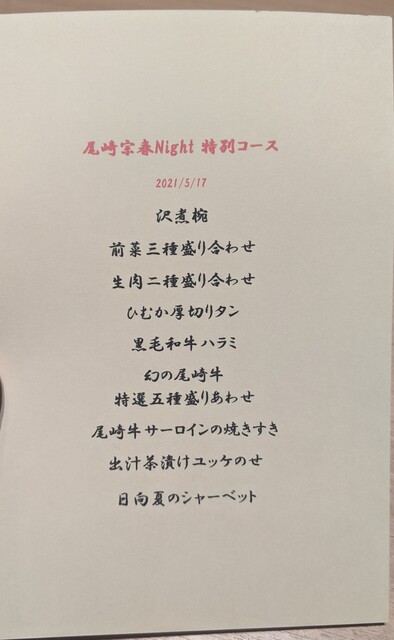 尾崎宗春Night 特別コース
2021/5/17
沢煮椀
前菜三種盛り合わせ
生肉二種盛り合わせ
ひむか厚切りタン
黒毛和牛ハラミ
幻の尾崎牛
特選五種盛りあわせ
尾崎牛サーロインの焼きすき
出汁茶漬けユッケのせ
日向夏のシャーベット